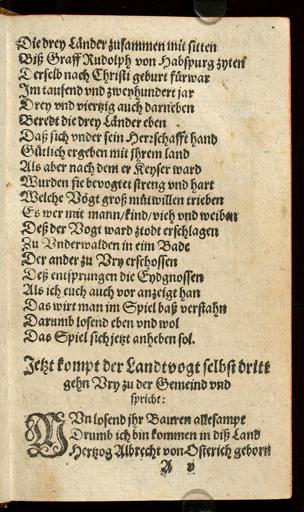 Die drey Länder zusammen mit sitten
Biß Graff Rudolph von Habspurg zyten
Derselb nach Christi geburt fürwar
Im tausend vnd zweyhundert jar
Drey vnd viertzig auch darneben
Beredt die drey Länder eben
Daß sich vnder sein Herrschafft hand
Gütlich ergeben mit jhrem land
Als aber nach dem er Keyser ward
Wurden sie bevogtet streng vnd hart
Welche Vögt groß mutwillen trieben
Es wer mit mann/kind/vieh vnd weiben
Deß der Vogt ward ztodt erschlagen
Zu Vnderwalden in eim Bade
Der ander zu Vry erschossen
Deß entsprungen die Eydgnossen
Als ich euch auch vor anzeigt han
Das wirt man im Spiel baß verstahn
Darumb losend eben vnd wol
Das Spiel sich jetzt anheben sol.
Jetzt kompt der Landtvogt selbst dritt
gehn Vry zu der Gemeind vnd
spricht:
NVn losend jhr Bauren allesampt
Drumb ich bin kommen in diß Land
Hertzog Albrecht von Osterich geborn
A v